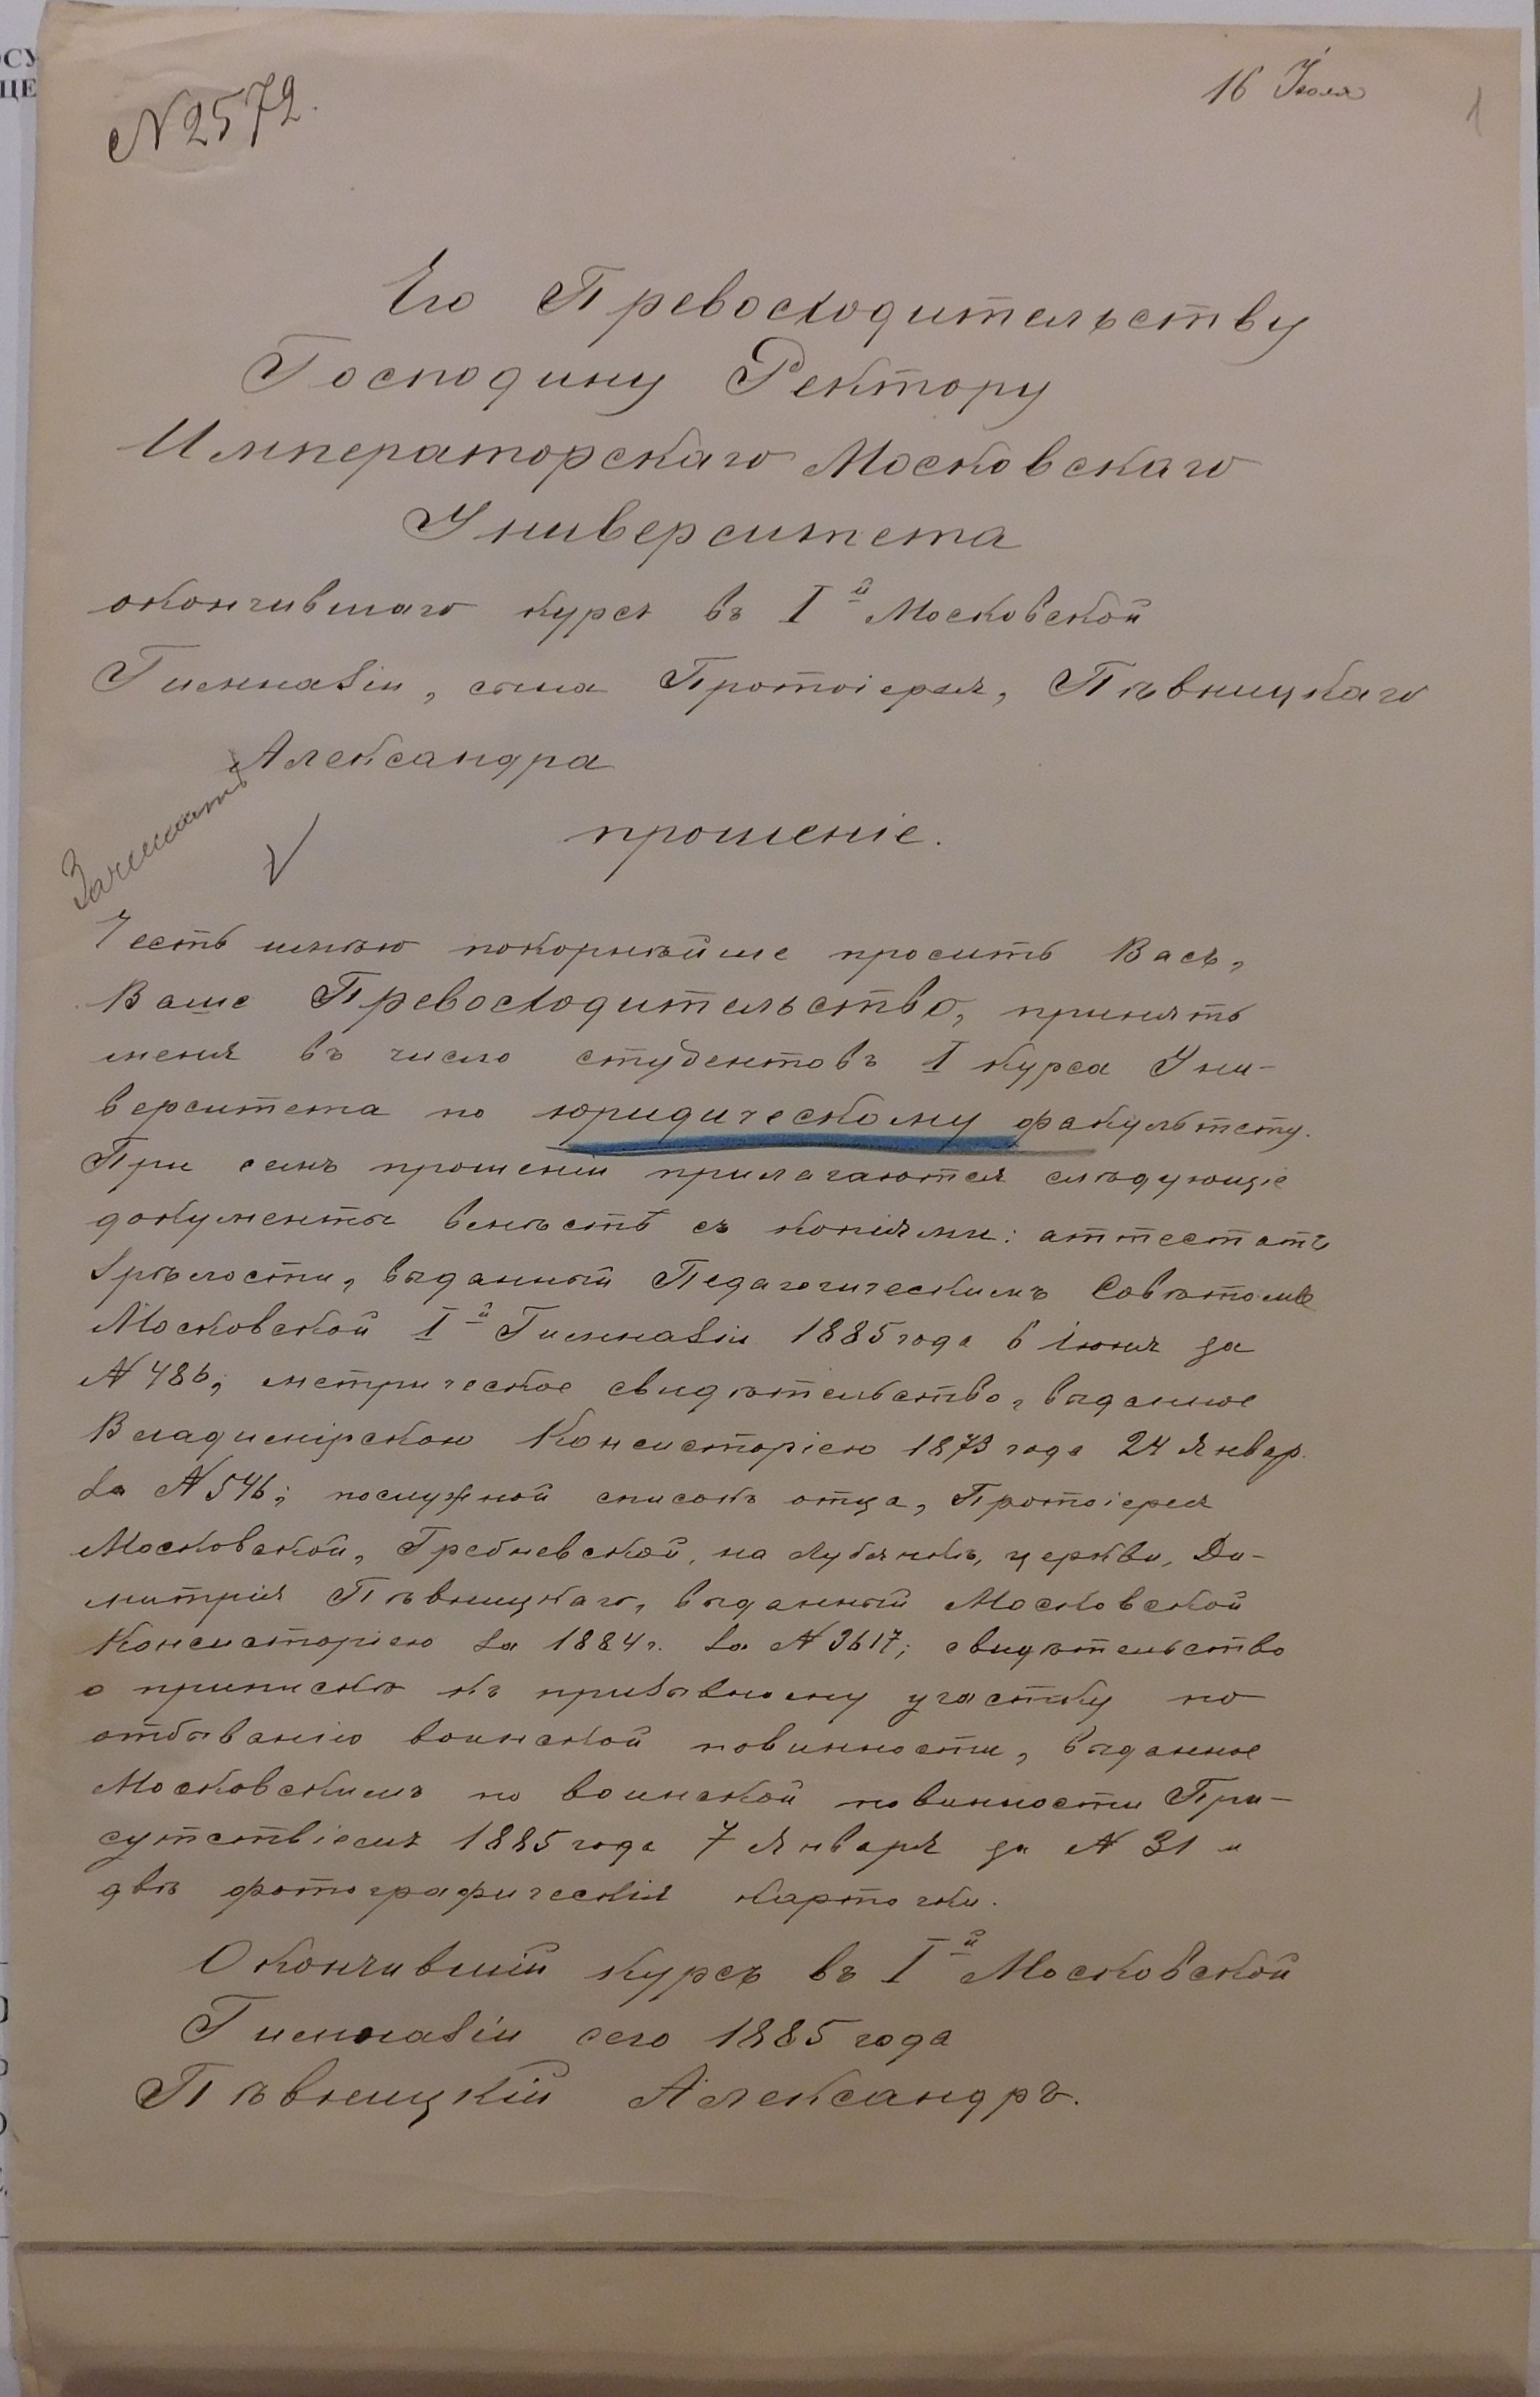 № 2572.
16 Іюля
1
Его Превосходительству
Господину Ректору
Императорскаго Московскаго
Университета
окончившаго курсъ въ I й Московской
Гимназіи, сына Протоіерея, Пѣвницкаго
Александра
Зачислить
прошеніе.
Честь имѣю покорнѣйше просить Васъ,
Ваше Превосходительство, принять
меня въ число студентовъ I курса Уни-
верситета по юридическому факультету.
При семъ прошеніи прилагаются слѣдующіе
документы вмѣстѣ съ копіями: аттестатъ
зрѣлости, выданный Педагогическимъ Совѣтомъ
Московской I й Гимназіи 1885 года 6 іюня за
№ 486; метрическое свидѣтельство, выданное
Владимірскою Консисторіею 1873 года 24 Январ.
за № 546; послужной списокъ отца, Протоіерея
Московской, Гребневской, на Лубянкѣ, церкви, Ди-
митрія Пѣвницкаго, выданный Московской
Консисторіею за 1884 г. за № 3617; свидѣтельство
о припискѣ къ призывному участку по
отбыванію воинской повинности, выданное
Московскимъ по воинской повинности При-
сутствіемъ 1885 года 7 Января за № 31 и
двѣ фотографическія карточки.
Окончившій курсъ въ I й Московской
Гимназіи сего 1885 года
Пѣвницкій Александръ.